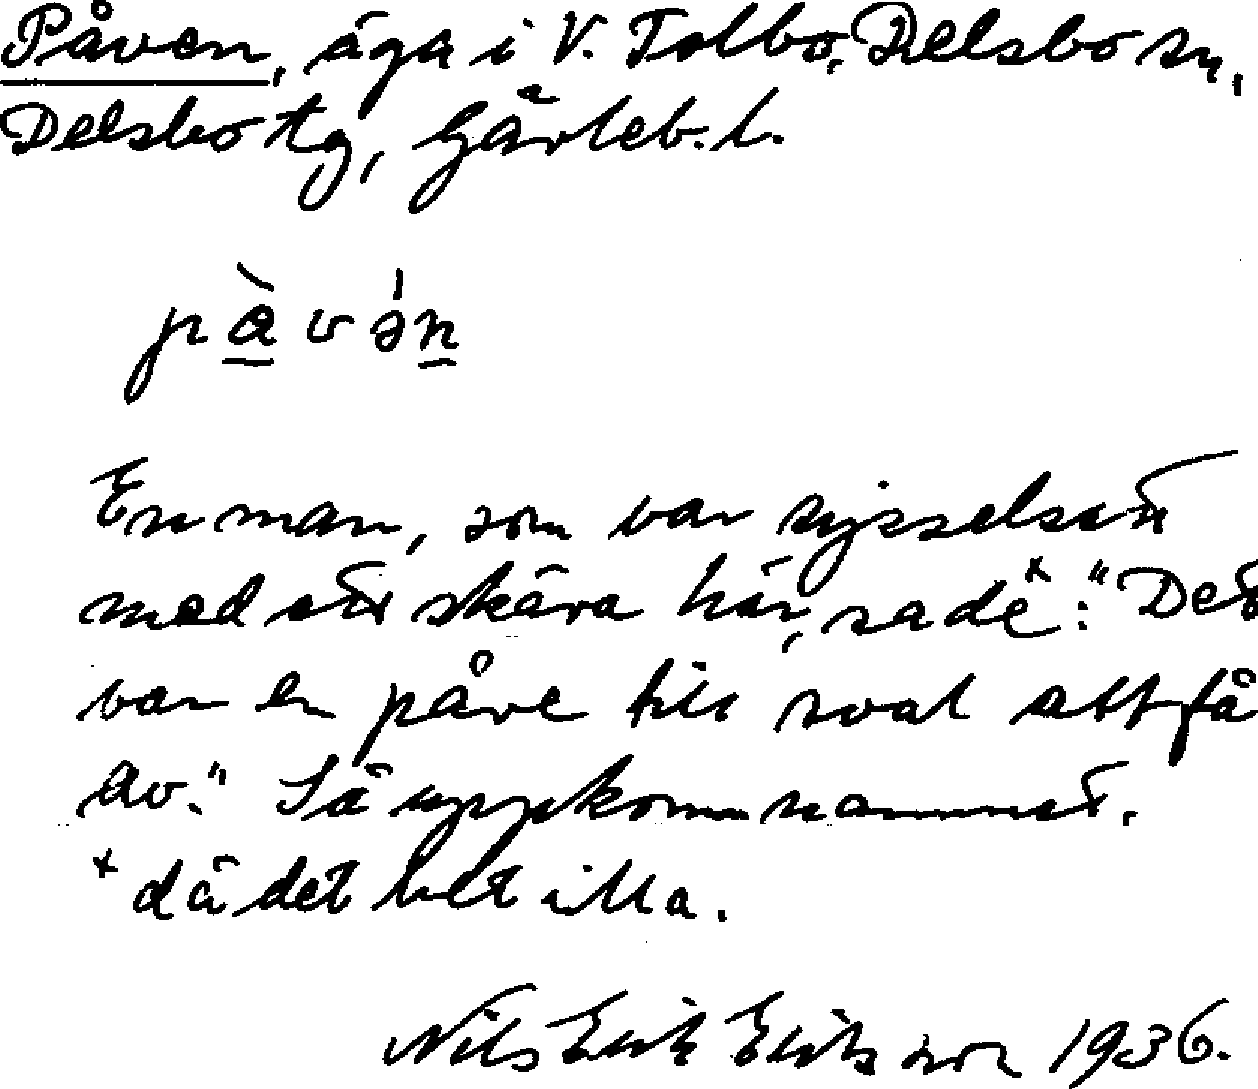 Påven, äga i V. Tolbo, Delsbo sn,
Delsbo tg, Gävleb. l.
pàvə́n
En man, som var sysselsatt
med att skära här, sade x: "Det
var en påve till sval att få
av." Så uppkom namnet.
x då det bet illa.
Nils Erik Eriksson 1936.